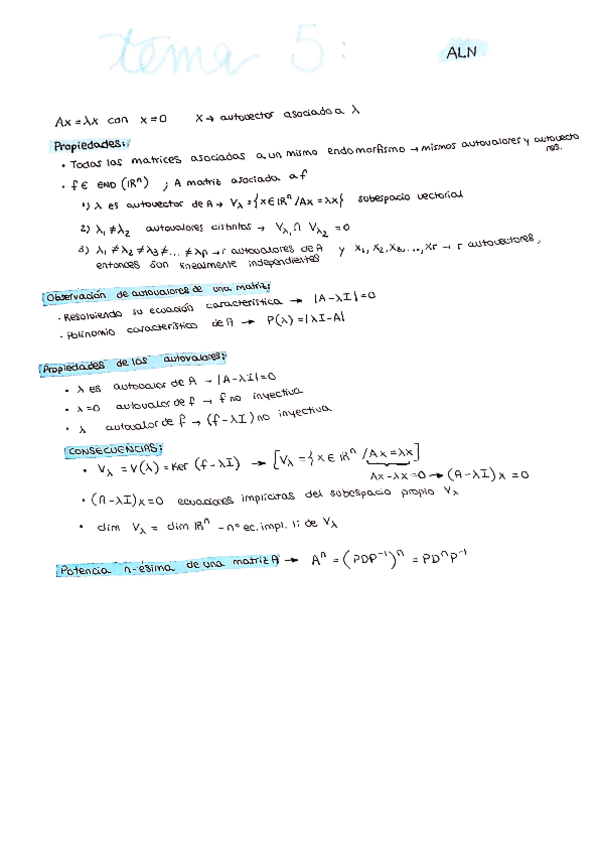 tema 5:
ALN
Ax = λx con x=0 x → autovector asociado a λ
Propiedades:
• Todas las matrices asociadas a un mismo endomorfismo → mismos autovalores y autovecto
res.
• f ∈ END (IRⁿ) ; A matriz asociada a f
1) λ es autovector de A → Vλ = {x ∈ IRⁿ / Ax = λx} subespacio vectorial
2) λ₁ ≠ λ₂ autovalores distintos → Vλ₁ ∩ Vλ₂ = 0
3) λ₁ ≠ λ₂ ≠ λ₃ ≠ ... ≠ λp → r autovalores de A y x₁, x₂, x₃, ..., xr → r autovectores,
entonces son linealmente independientes
Observación de autovalores de una matriz:
• Resolviendo su ecuación característica → |A-λI| = 0
• Polinomio característico de A → P(λ) = |λI-A|
Propiedades de los autovalores:
• λ es autovalor de A → |A-λI| = 0
• λ=0 autovalor de f → f no inyectiva
• λ autovalor de f → (f-λI) no inyectiva
CONSECUENCIAS:
• Vλ = V(λ) = Ker (f-λI) → [Vλ = { x ∈ IRⁿ / Ax = λx]
Ax-λx=0 → (A-λI)x = 0
• (A-λI)x=0 ecuaciones implícitas del subespacio propio Vλ
• dim Vλ = dim IRⁿ - nº ec. impl. li de Vλ
Potencia n-ésima de una matriz A → Aⁿ = (PDP⁻¹)ⁿ = PDⁿP⁻¹